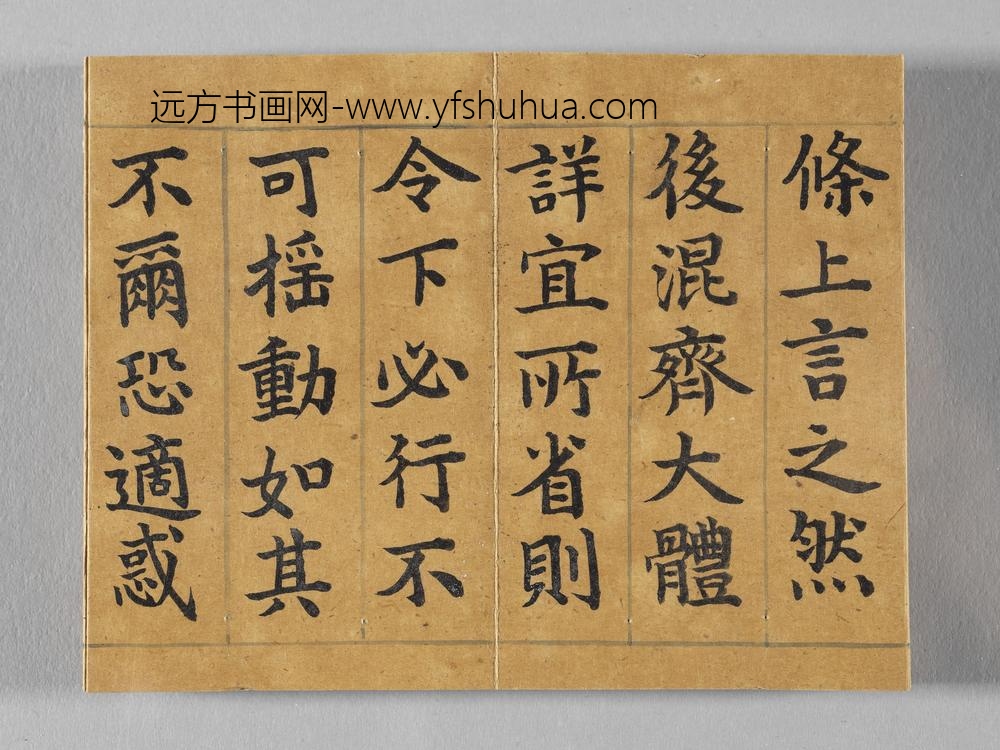 远方书画网-www.yfshuhua.com
條上言之然
後混齊大體
詳宜所省則
令下必行不
可摇動如其
不爾恐適惑